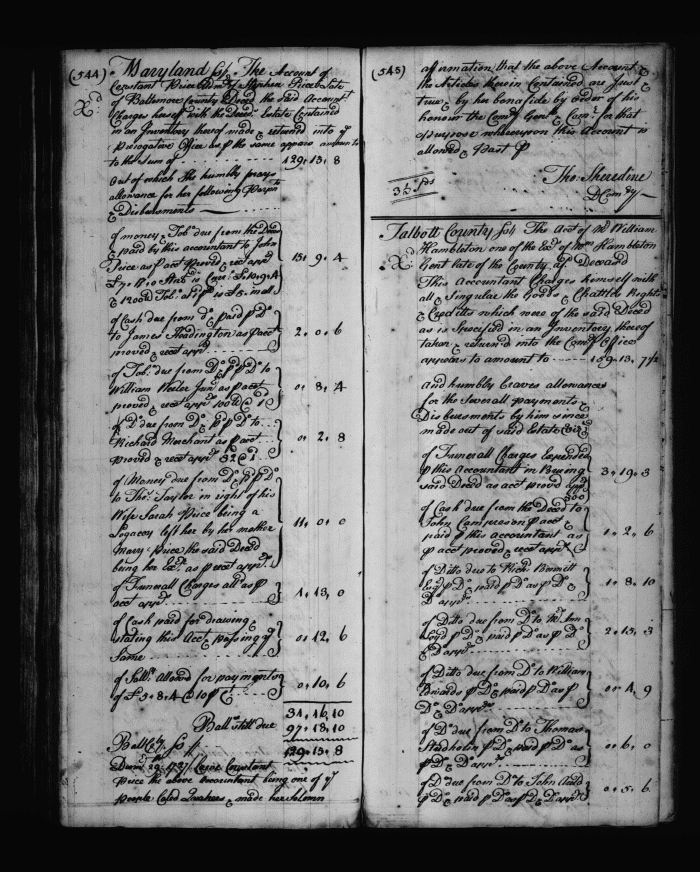 (544) Maryland ss. The Account of
Constant Price Adm.x of Stephen Price Late
of Baltemore County Deced. the said Account.t
Charges herself with the Deced. Estate Contained
in an Inventory thereof made & returned into ye
Prerogative Office as p the same appears amount.g
to the Sum of 129. 13. 8
Out of which She humbly prays
allowance for her following Paym.ts
& Disbursments
of money & Tob.o due from the Deced
& paid by this accountant to John
Price as p acct proved & rect appr.
15. 9. 4
of Cash due from d.o & paid p D.o
to James Headington as p acct
proved & rect appr. 2. 0. 6
of Tob.o due from D.o p D.o to
William Junr as p acct
proved & rect appr. 0. 8. 4
of D.o due from D.o p D.o to
Richard Merchant as p acct
proved & rect appr. 32 @ 0. 2. 8
of Money due from D.o p D.o
to Tho.s Taylor in right of his
Wife Sarah Price being a
Legacey left her by her mother
Mary Price the said Deced
being her Ex.r as p acct appr. 11. 0. 0
of Funerall Charges all.d as p
acct appr. 4. 13. 0
of Cash paid for drawing
stating this Acct & passing ye
Same 0. 12. 6
of Sall.y Allowd for payment
of £5. 8. 4 @ 10 p C.t 0. 10. 6
34. 16. 10
Ball.a still due 97. 13. 10
129. 13. 8
Balt Cty. ss
1737 Came Constant
Price the above accountant being one of ye
People Caled Quakers & made her Solemn
(545) affirmation that the above Account &
the Articles therein Contained are Just &
true & by her bonafide by order of his
honour the Com.ry Gen.l & Com.n for that
purpose whereupon this Account is
allowed & Past p
35 Sds Tho. Sheredine
D Com.ry
Talbott County ss The Acct of Mr William
Hambleton one of the Ex.rs of Wm Hambleton
Gent late of the County afd Deceasd
This Accountant Charges himself with
all & Singular the Goods Chattles Rights
& Credits which were of the said Deced
as is Specified in an Inventory thereof
taken & returned into the Com.ry Office
appears to amount to 159. 13. 7½
And humbly Craves allowances
for the Severall payments &
Disbursments by him since
made out of said Estate Viz.
of Funerall Charges Expended
p this Accountant in Burying
said Deced as acct proved appr 3. 19. 3
of Cash due from the Deced to
John p acct
paid p this accountant as
p acct proved & rect appr. 1. 2. 6
of Ditto due to Rich.d Bennett
Esq.r p D.o & paid p D.o as p D.o &
D.o appr. 1. 8. 10
of Ditto due from D.o to
p D.o & paid p D.o as p D.o
& D.o appr. 2. 15. 3
of Ditto due from D.o to William
p D.o & paid p D.o as p
D.o & D.o appr. 0. 4. 9
of D.o due from D.o to Thomas
p D.o & paid p D.o as
p D.o & D.o appr. 0. 6. 0
of D.o due from D.o to John Auld
p D.o & paid p D.o as p D.o & D.o appr. 0. 5. 6